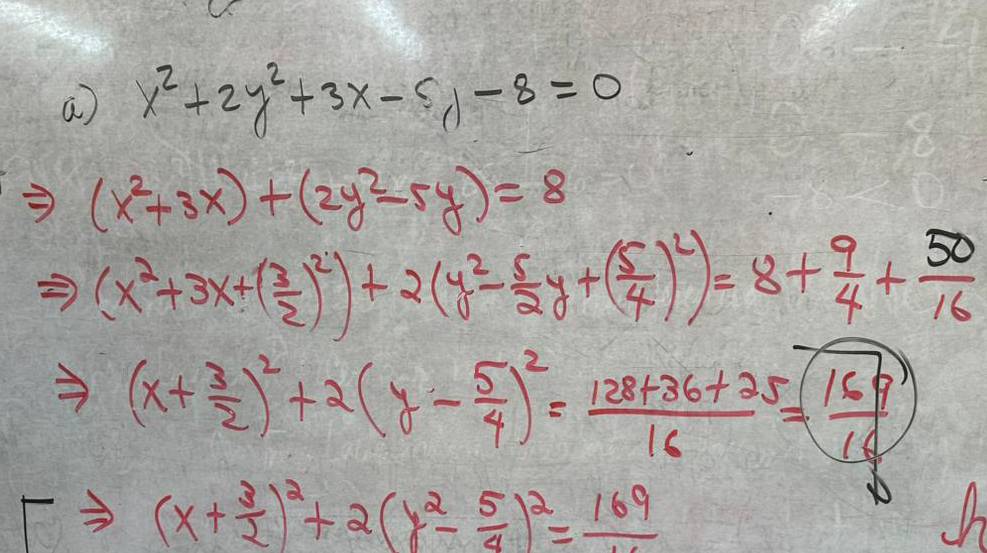 a) x² + 2y² + 3x - 5y - 8 = 0
⇒ (x² + 3x) + (2y² - 5y) = 8
⇒ (x² + 3x + (3/2)²) + 2(y² - 5/2 y + (5/4)²) = 8 + 9/4 + 50/16
⇒ (x + 3/2)² + 2(y - 5/4)² = (128 + 36 + 25)/16 = 169/16
⇒ (x + 3/2)² + 2(y² - 5/4)² = 169/16